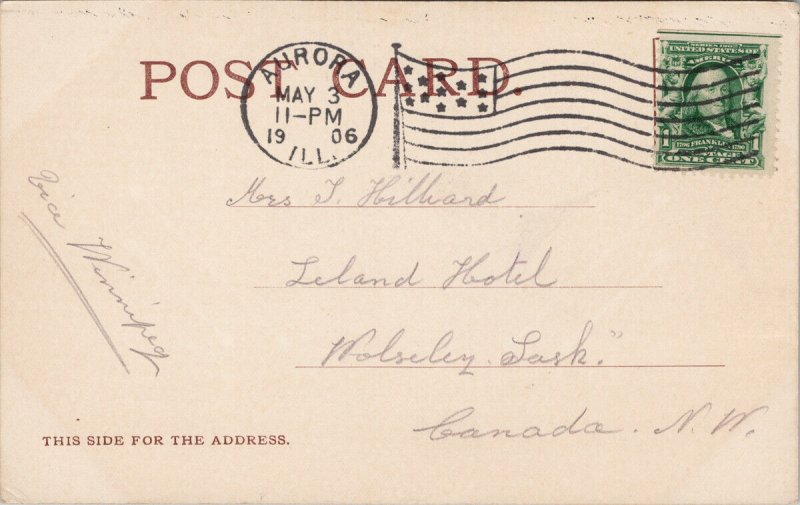 POST CARD.
AURORA
MAY 3
11-PM
19 06
ILL.
SERIES 1902
UNITED STATES OF
AMERICA
1
FRANKLIN
POSTAGE
ONE CENT
Mrs T. Hilliard
Leland Hotel
Wolseley. Sask."
Canada. N. W.
via Winnipeg
THIS SIDE FOR THE ADDRESS.